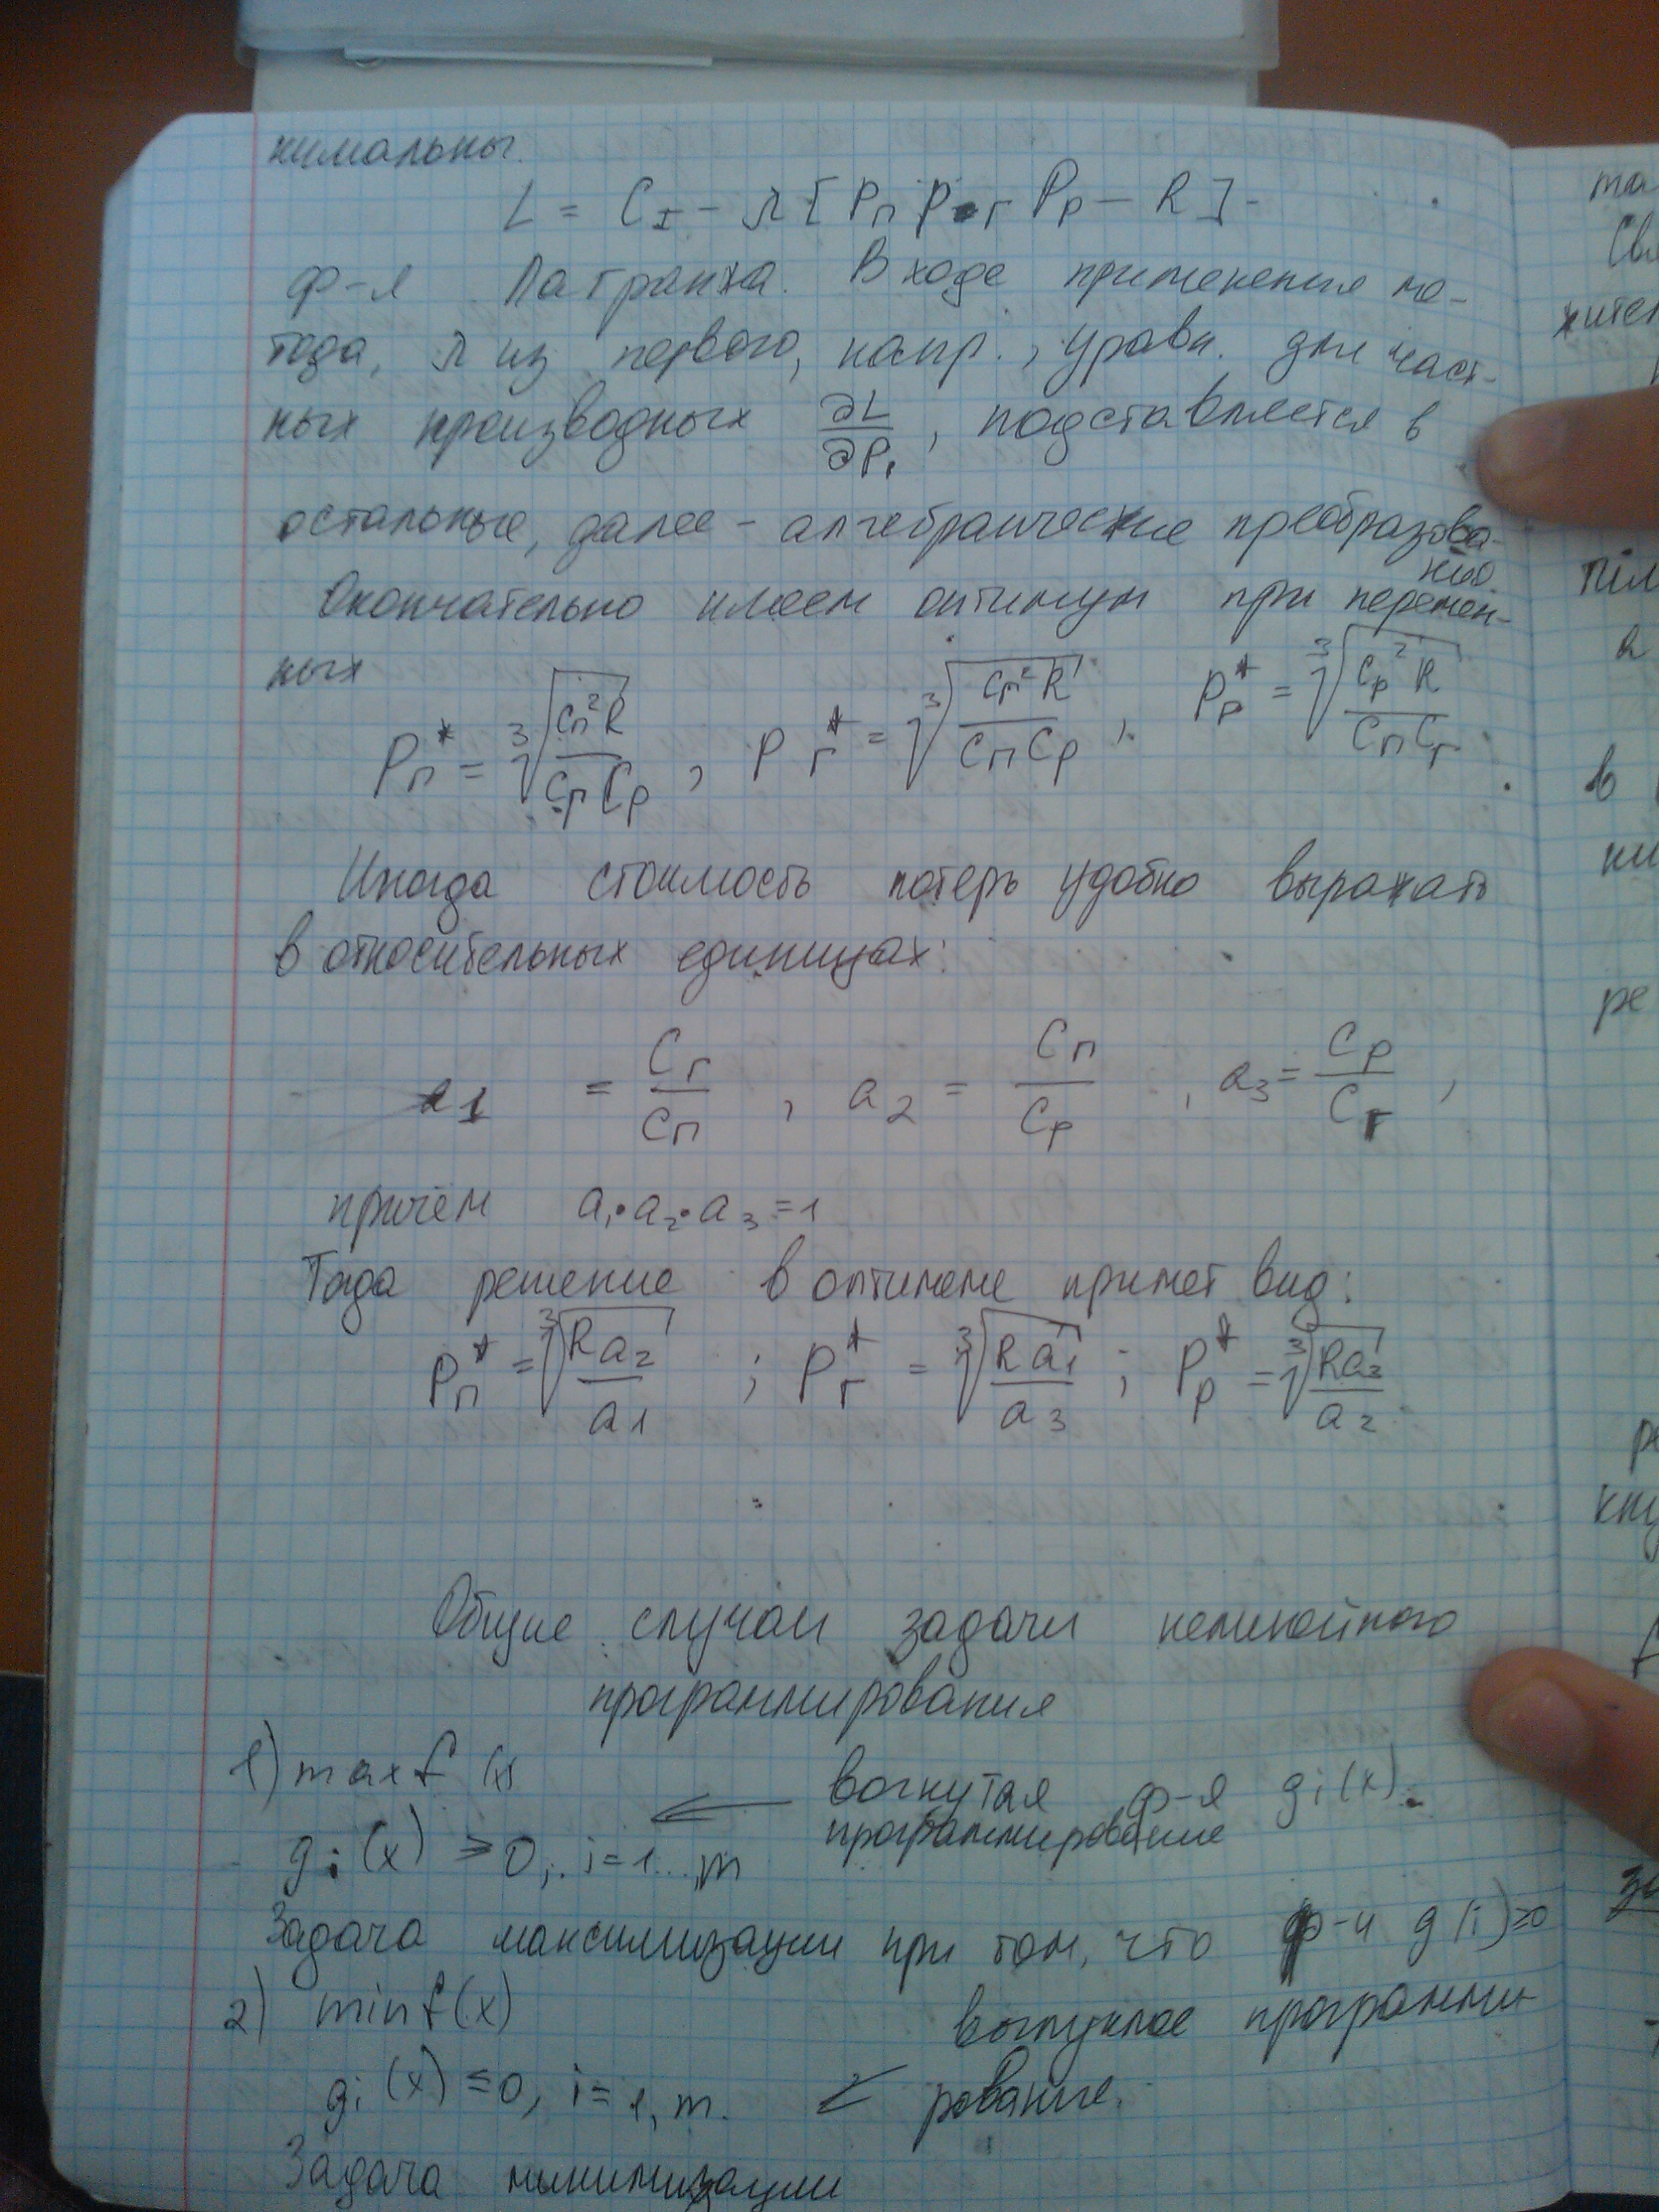 нимальны.
L = C_Σ - λ [P_п P_г P_р - R] -
ф-я Лагранжа. В ходе применения ме-
тода, λ из первого, напр., уравн. для част-
ных производных ∂L/∂P₁, подставляется в
остальные, далее - алгебраические преобразова-
ния
Окончательно имеем оптимум при перемен-
ных
P_п* = ∛(C_п² R / C_г C_р), P_г* = ∛(C_г² R / C_п C_р), P_р* = ∛(C_р² R / C_п C_г)
Иногда стоимость потерь удобно выражать
в относительных единицах:
a1 = C_г / C_п, a2 = C_п / C_р, a3 = C_р / C_г,
причём a₁·a₂·a₃=1
Тогда решение в оптимуме примет вид:
P_п* = ∛(Ra2 / a1); P_г* = ∛(Ra1 / a3); P_р* = ∛(Ra3 / a2)
Общие случаи задачи нелинейного
программирования
1) max f(x)
← вогнутая ф-я gi(x).
программирование
gi(x) ≥ 0, i=1...,m
Задача максимизации при том, что ф-и g(i)≥0
2) min f(x) выпуклое программи-
gi(x) ≤ 0, i = 1, m. ← рование.
Задача минимизации